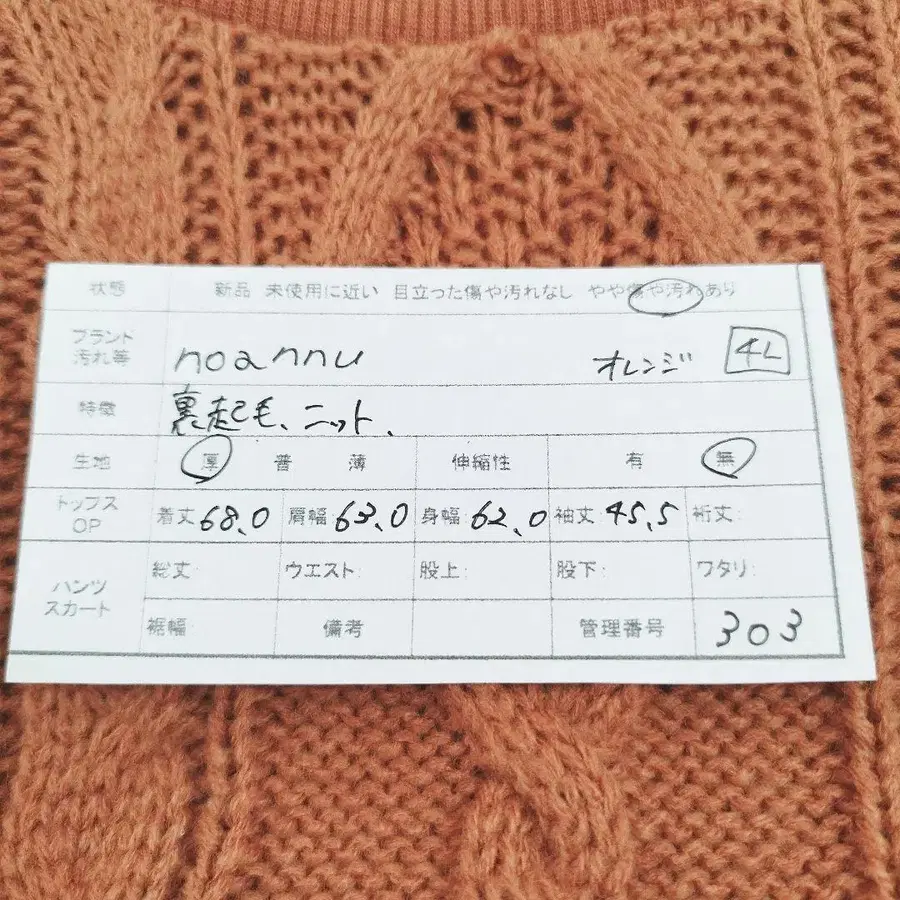 状態 新品 未使用に近い 目立った傷や汚れなし やや傷や汚れあり
ブランド
汚れ等 noannu オレンジ 4L
特徴 裏起毛、ニット、
生地 厚 普 薄 伸縮性 有 無
トップス
OP 着丈 68.0 肩幅: 63.0 身幅: 62.0 袖丈 45.5 裄丈:
パンツ
スカート 総丈: ウエスト: 股上: 股下: ワタリ:
裾幅: 備考 管理番号 303